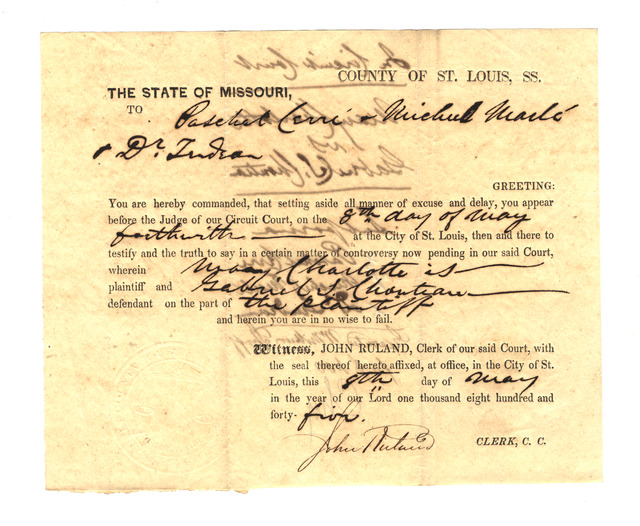 COUNTY OF ST. LOUIS, SS.
THE STATE OF MISSOURI,
TO Paschal Cerré & Michel Marlé
& Dr. Trudeau
GREETING:
You are hereby commanded, that setting aside all manner of excuse and delay, you appear
before the Judge of our Circuit Court, on the 8th day of May
forthwith at the City of St. Louis, then and there to
testify and the truth to say in a certain matter of controversy now pending in our said Court,
wherein Mary Charlotte is
plaintiff and Gabriel S. Chouteau
defendant on the part of the plaintiff
and herein you are in no wise to fail.
Witness, JOHN RULAND, Clerk of our said Court, with
the seal thereof hereto affixed, at office, in the City of St.
Louis, this 8th day of May
in the year of our Lord one thousand eight hundred and
forty-five.
John Ruland CLERK, C. C.